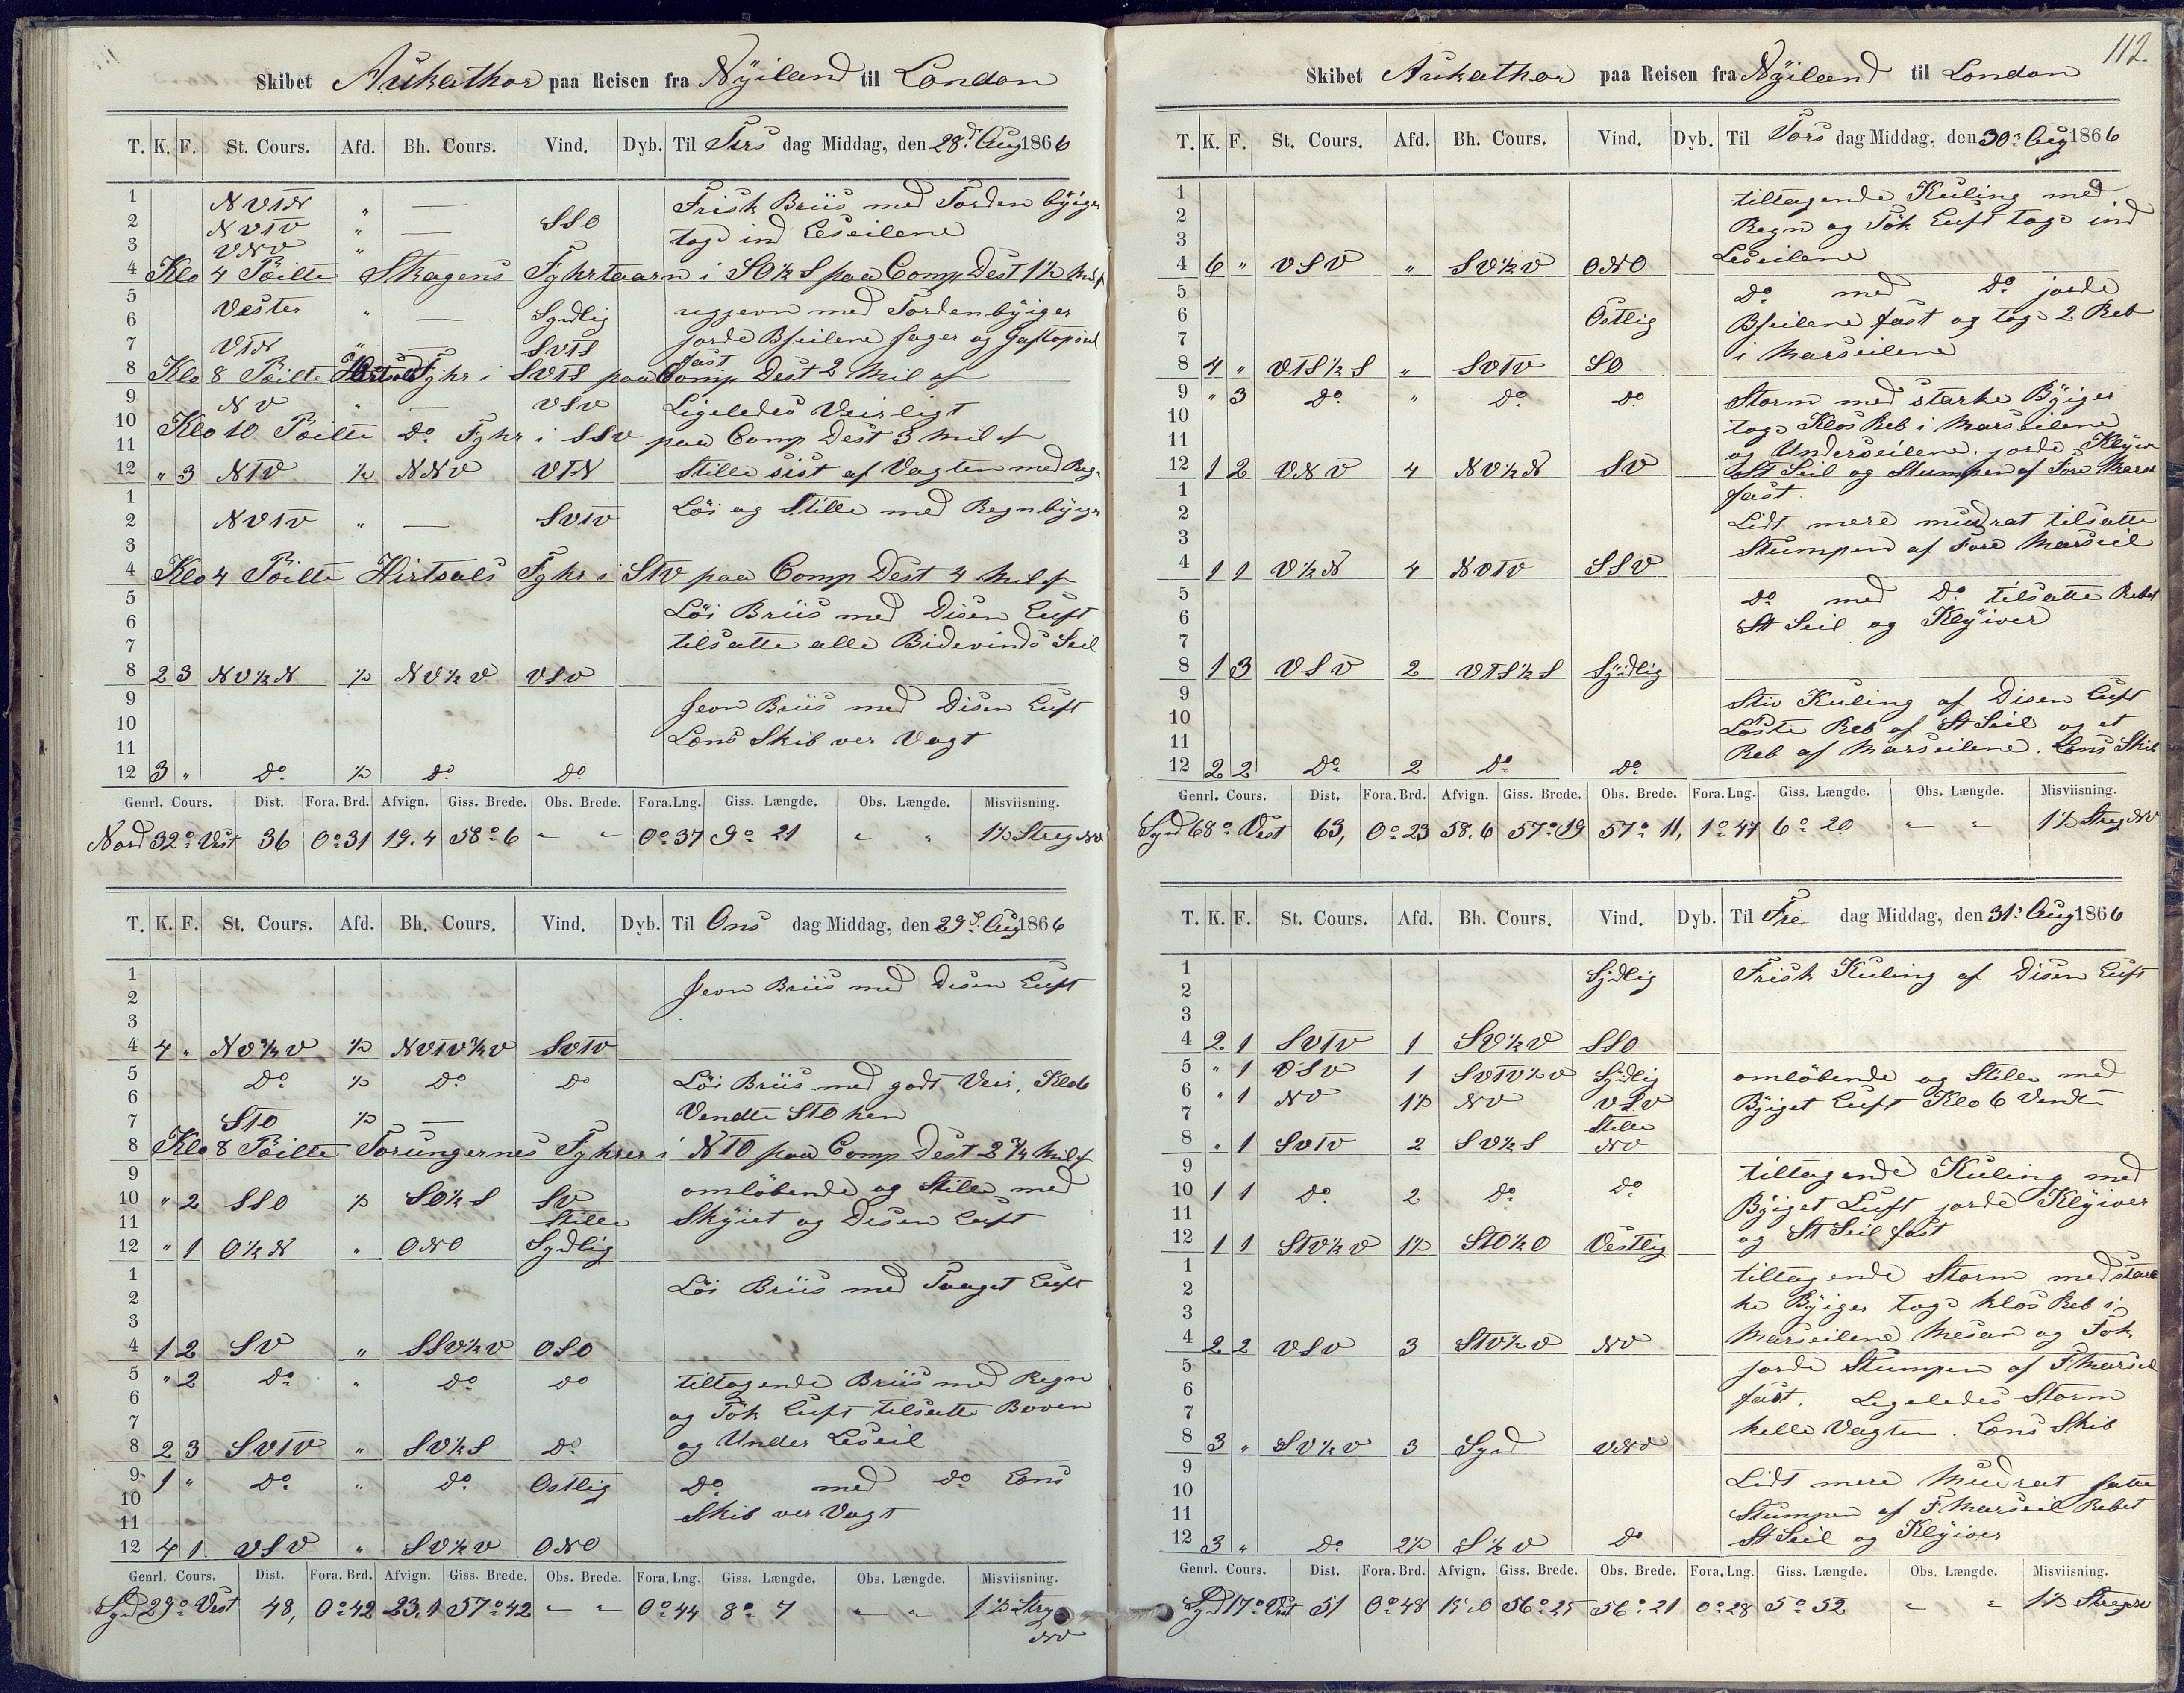 Skibet Aukathor paa Reisen fra Nÿiland til London
T. K. F. St. Cours. Afd. Bh. Cours. Vind. Dyb. Til Tirs dag Middag, den 28d Aug 1866
1 NVTN " — Frisk Briis med Torden byiger
2 NVTV " — SSO tog ind Leseilene
3 VNV "
4 Klo 4 Peilte Skagens Fyhrtaarn i SO½S paa Comp Dest 1½ Mil af
5 Vester " — Sydlig ugjevn med Tordenbÿiger
6 jorde Bseilene fager og Gaftopseil
7 VTN " — SVTS fast
8 Klo 8 Peilte Hirtsals Fyhr i SVTS paa Comp Dest 2 Mil af
9 NV " — VSV Ligeledes Veirligt
10 Klo 10 Peilte Do Fyhr i SSV paa Comp Dest 3 Mil af
11
12 " 3 NTV ½ NNV VTN Stille sist af Vagten med Regn
1 Löi og Stille med Regnbÿiger
2 NVTV " — SVTV
3
4 Klo 4 Peilte Hirtsals Fyhr i STV paa Comp Dest 4 Mil af
5 Löi Briis med Disen Luft
6 tilsatte alle Bidevinds Seil
7
8 2 3 NV½N ½ NV½V VSV
9 Jevn Briis med Disen Luft
10 Lens Skib ver Vagt
11
12 3 " Do ½ Do Do
Genrl. Cours. Dist. Fora. Brd. Afvign. Giss. Brede. Obs. Brede. Fora. Lng. Giss. Længde. Obs. Længde. Misviisning.
Nord 32° Vest 36 0° 31 19.4 58° 6 " " 0° 37 9° 21 " " 1½ Streg NV
T. K. F. St. Cours. Afd. Bh. Cours. Vind. Dyb. Til Ons dag Middag, den 29d Aug 1866
1 Jevn Briis med Disen Luft
2
3
4 4 " NV¾V ½ NVTV¾V SVTV
5 Do ½ Do Do Löi Briis med godt Veir, Klo 6
6 Vendte STO hen
7 STO ½ —
8 Klo 8 Peilte Torungernes Fyhrer i NTO paa Comp Dest 2¾ Mil af
9 omlöbende og Stille med
10 " 2 SSO ½ SO½S SV Skÿiet og Disen Luft
11 Stille
12 " 1 O½N " ONO Sydlig
1 Löi Briis med Taaget Luft
2
3
4 1 2 SV " SSV½V OSO
5 " 2 Do " Do Do tiltagende Briis med Regn
6 og Tök Luft tilsatte Boven
7 og Under Leseil
8 2 3 SVTV " SV½S Do
9 1 " Do " Do Ostlig Do med Do Lens
10 Skib ver Vagt
11
12 4 1 VSV " SV½V ONO
Genrl. Cours. Dist. Fora. Brd. Afvign. Giss. Brede. Obs. Brede. Fora. Lng. Giss. Længde. Obs. Længde. Misviisning.
Syd 29° Vest 48, 0° 42 23.1 57° 42 " " 0° 44 8° 7 " " 1½ Streg
NV
112
Skibet Aukathor paa Reisen fra Nÿiland til London
T. K. F. St. Cours. Afd. Bh. Cours. Vind. Dyb. Til Tors dag Middag, den 30d Aug 1866
1 tiltagende Kuling med
2 Regn og Tök Luft tog ind
3 Leseilene
4 6 " VSV " SV½V ONO
5 Do med Do jorde
6 Östlig Bseilene fast og tog 2 Reb
7 i Marseilene
8 4 " VTS½S " SVTV SO
9 " 3 Do " Do Do Storm med starke Bÿiger
10 tog Klos Reb i Marseilene
11 og Underseilene, jorde Klÿiver
12 1 2 VNV 4 NV½N SV St Seil og Stumpen af Fore Mers
1 fast.
2 Lidt mere mudrat tilsatte
3 Stumpen af Fore Marseil
4 1 1 V½N 4 NVTV SSV
5 Do med Do tilsatte Rebet
6 St Seil og Klÿiver
7
8 1 3 VSV 2 VTS½S Sÿdlig
9 Stiv Kuling af Disen Luft
10 Löste Reb af St Seil og et
11 Reb af Marseilene. Lens Skib
12 2 2 Do 2 Do Do
Genrl. Cours. Dist. Fora. Brd. Afvign. Giss. Brede. Obs. Brede. Fora. Lng. Giss. Længde. Obs. Længde. Misviisning.
Syd 68° Vest 63, 0° 23 58.6 57° 19 57° 11, 1° 47 6° 20 " " 1½ Streg NV
T. K. F. St. Cours. Afd. Bh. Cours. Vind. Dyb. Til Fre dag Middag, den 31d Aug 1866
1 Sydlig Frisk Kuling af Disen Luft
2
3
4 2 1 SVTV 1 SV½V SSO
5 " 1 VSV 1 SVTV½V Sydlig omlöbende og Stille med
6 " 1 NV 1½ NV VSV Bÿiget Luft Klo 6 Vendte
7 Stille
8 " 1 SVTV 2 SV½S NV
9 tiltagende Kuling med
10 1 1 Do 2 Do Do Bÿiget Luft jorde Klÿiver
11 og St Seil fast
12 1 1 STV½V 1½ STO½O Vestlig
1 tiltagende Storm med star
2 ke Bÿiger tog klos Reb i
3 Marseilene Mesan og Fok
4 2 2 VSV 3 STV½V NV
5 jorde Stumpen af F Marseil
6 fast. Legeledes Storm
7 helle Vagten. Lens Skib
8 3 " SV½V 3 Syd VNV
9 Lidt mere Mudrat satte
10 Stumpen af F Marseil Rebet
11 St Seil og Klÿiver
12 3 " Do 2½ S½V Do
Genrl. Cours. Dist. Fora. Brd. Afvign. Giss. Brede. Obs. Brede. Fora. Lng. Giss. Længde. Obs. Længde. Misviisning.
Syd 17° Vest 51 0° 48 15.0 56° 25 56° 21 0° 28 5° 52 " " 1½ Streg NV